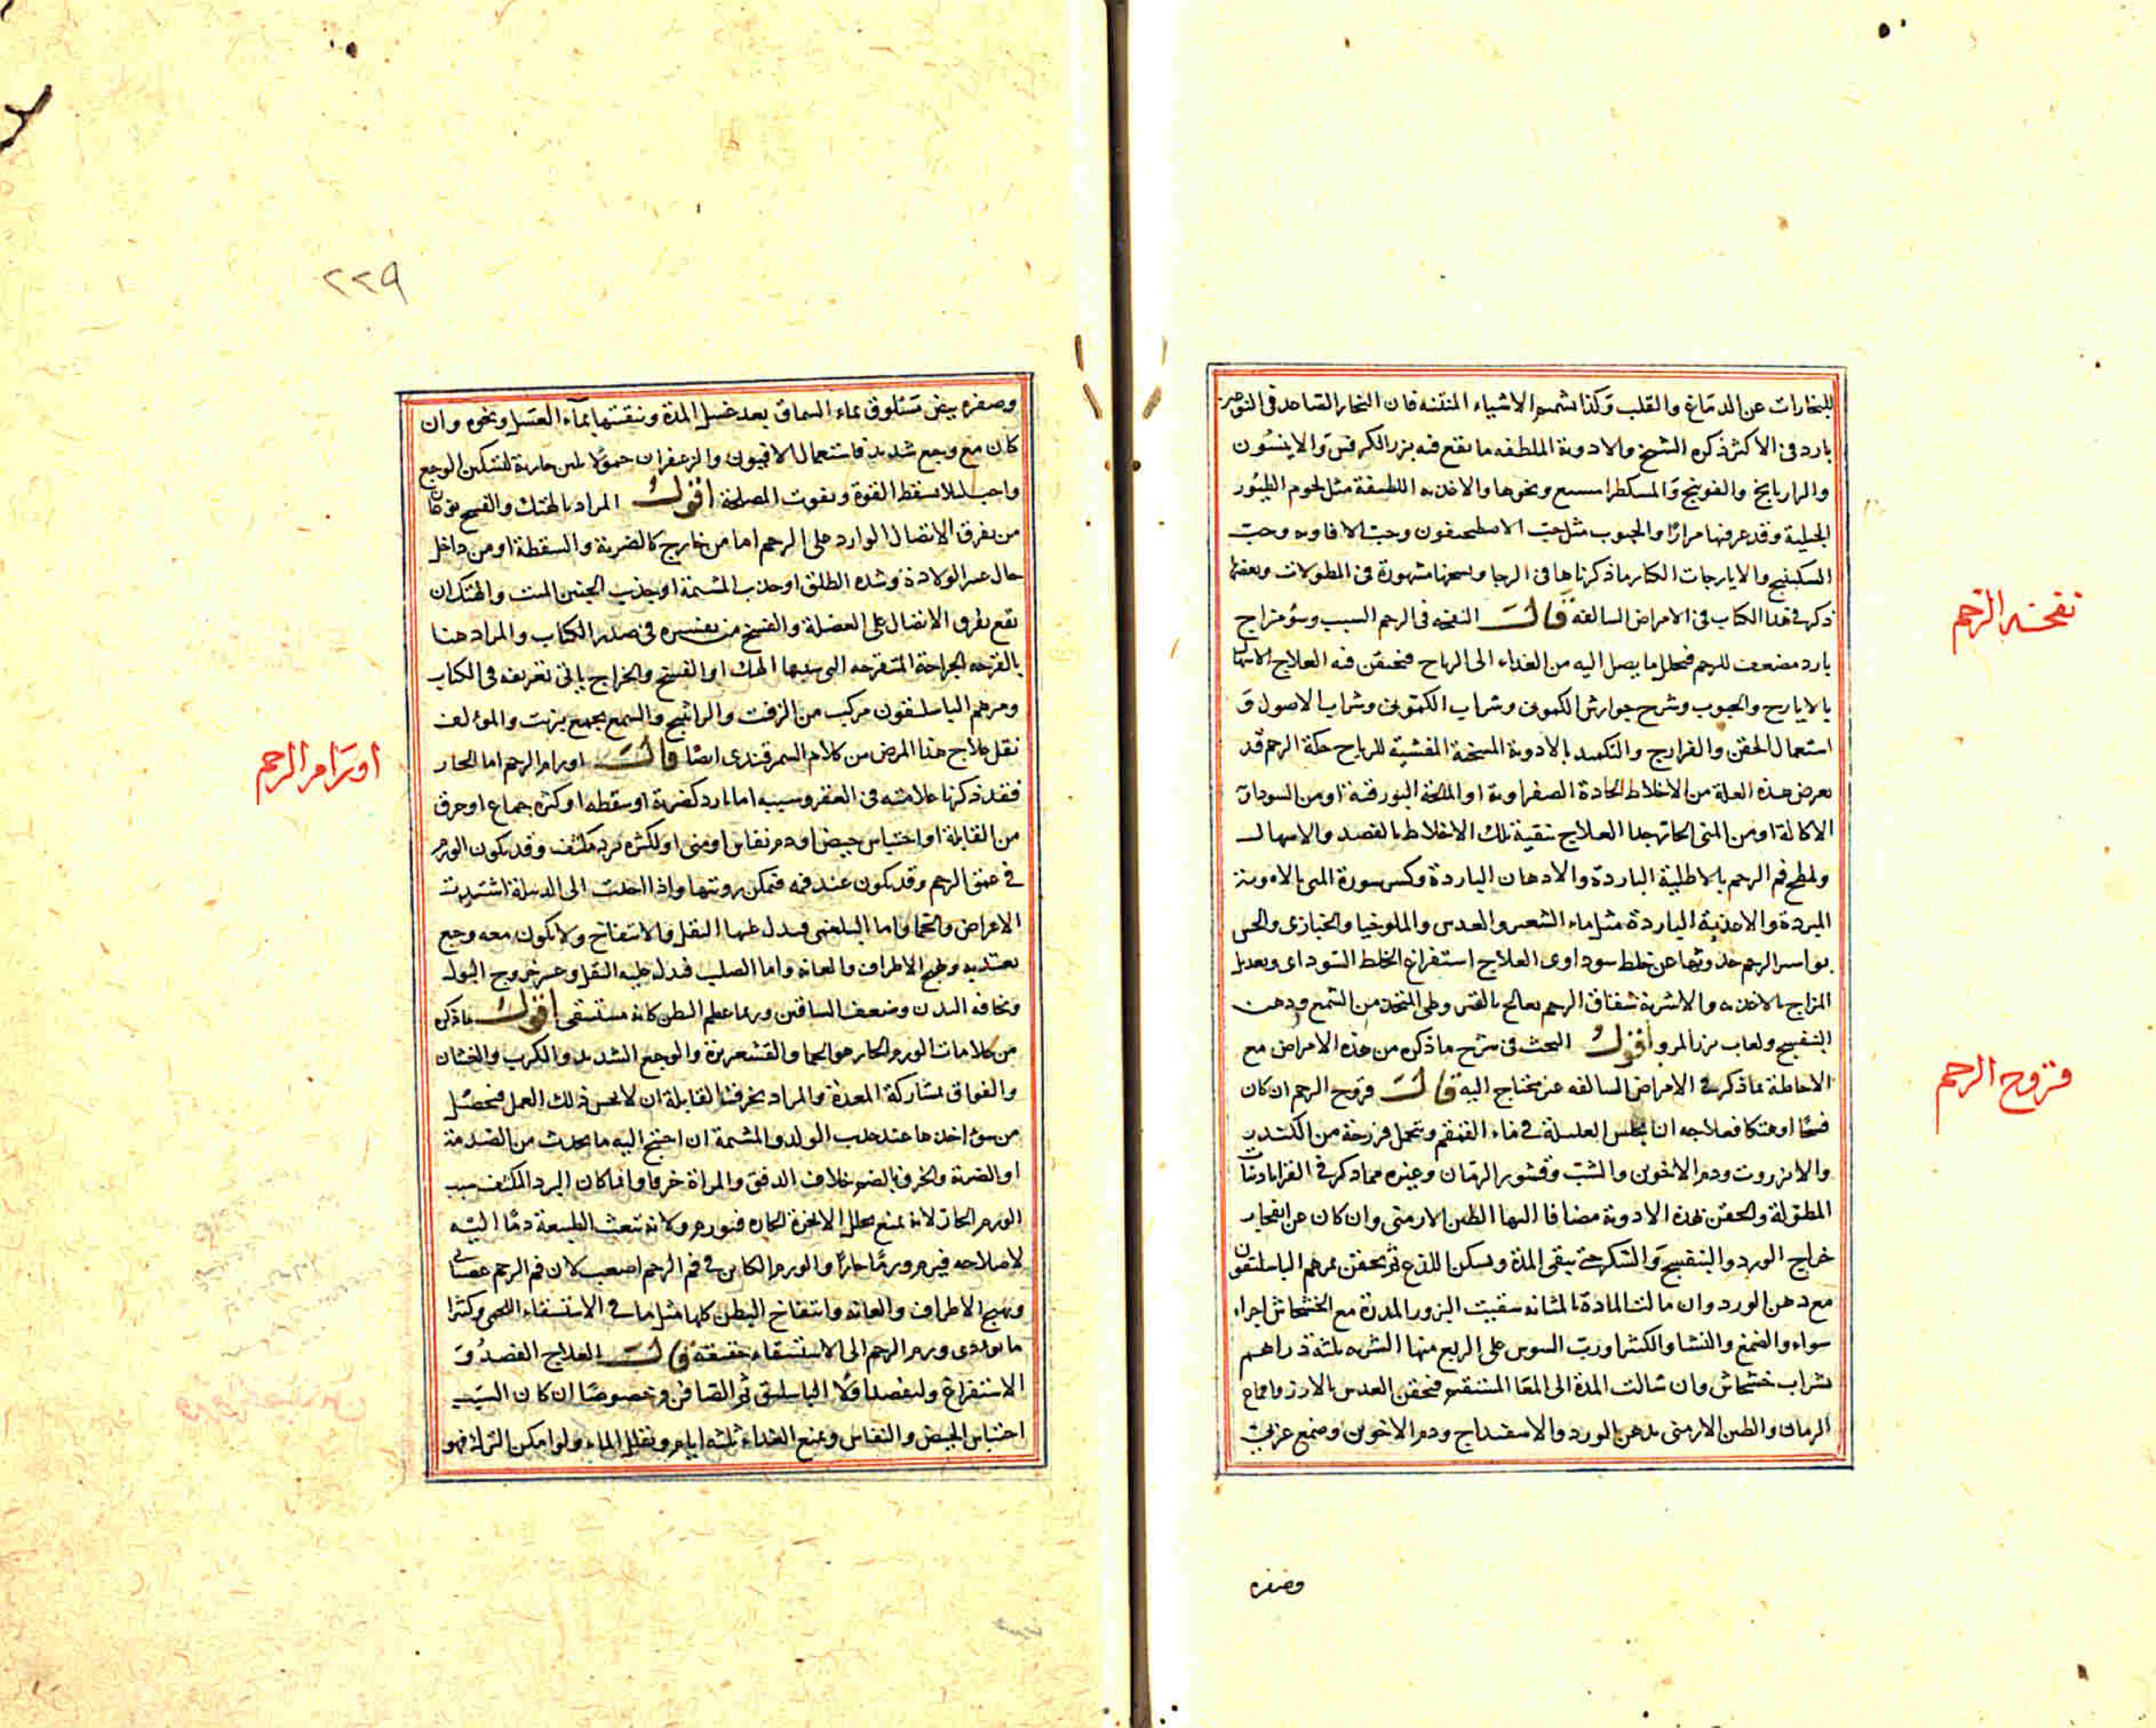 للبخارات عن الدماغ والقلب وكذا شمهم الاشياء المنتنه فان البخار الصاعد في
بارد في الاكثر ذكره الشيخ والادوية الملطفه ما يقع فيه بزر الكرفس والانيسون
والرازيانج والفوتنج ونحوها والاغذيه اللطيفة مثل لحوم الطيور
الجبلية وقد عرفتها مرارا والحبوب مثل حب الاصطمحيقون وحب الافاويه وحب
السكبينج والايارجات الكبار ما ذكرناها في الرجا مشهورة في المطولات وبعضها
ذكر في هذا الكتاب في الامراض السالفة قال النفخه في الرحم السبب سوء مزاج
بارد مضعف للرحم فيحلل ما يصل اليه من الغذاء الى الرياح فيحتقن فيه العلاج الاسهال
بالايارج والحبوب وشرح جوارش الكموني وشراب الكموني وشراب الاصول و
استعمال الحقن والفرازيج والتكميد بالادوية المسخنة المفشية للرياح حكة الرحم قد
تعرض هذه العلة من الاخلاط الحادة الصفراوية او المالحة البورقية او من السوداء
الاكالة او من المنى الحاد جدا العلاج تنقية تلك الاخلاط بالفصد والاسهال
ولطخ فم الرحم بالاطلية الباردة والادهان الباردة وكسر سورة المنى بالادوية
المبردة والاغذية الباردة مثل ماء الشعير والعدس والملوخيا والخبازى والخس
بواسير الرحم حدوثها عن خلط سوداوى العلاج استفراغ الخلط السوداى وتعديل
المزاج بالاغذيه والاشربة شقاق الرحم يعالج بالقيروطى المتخذ من الشمع ودهن
البنفسج ولعاب بزر المرو اقول البحث في شرح ما ذكره من هذه الامراض مع
الاحاطة بما ذكر في الامراض السالفه غير محتاج اليه قال قروح الرحم ان كان
فسخا او هتكا فعلاجه ان تجلس العليلة في ماء القمقم وتحمل فرزجة من الكندر
والانزروت ودم الاخوين والشب وقشور الرمان وغيره مما ذكر في القراباذينات
المطولة والحقن بهذه الادوية مضافا اليها الطين الارمنى وان كان عن انفجار
خراج الورد والبنفسج والسكر حتى ينقى المدة ويسكن اللذع ثم يحقن بمرهم الباسليقون
مع دهن الورد وان مالت المادة الى المثانه سقيت البزور المدرة مع الخشخاش اجزاء
سواء والصمغ والنشا والكثيرا ورب السوس على الربع منها الشربه ثلثة دراهم
بشراب خشخاش وان سالت المدة الى المعا المستقيم فيحقن العدس بالارز واقماع
الرمان والطين الارمنى بدهن الورد والاسفيداج ودم الاخوين وصمغ عربى
نفخة الرحم
قروح الرحم
وصفره
٢٢٩
وصفره بيض مسلوق بماء السماق بعد غسل المدة وتنقيتها بماء العسل ونحوه وان
كان مع وجع شديد فاستعمال الافيون والزعفران حمولا بلبن جارية لتسكين الوجع
واجب لئلا تسقط القوة وتفوت المصلحة اقول المراد بالهتك والفسخ نوعان
من تفرق الاتصال الوارد على الرحم اما من خارج كالضربة والسقطة او من داخل
حال عسر الولادة وشدة الطلق او جذب المشيمة او جذب الجنين الميت والهتك ان
يقع تفرق الاتصال على العضلة والفسخ من تفسيره في صدر الكتاب والمراد هنا
بالقرحه الجراحة المتقرحه التى سببها الهتك او الفسخ والخراج ياتى تعريفه في الكتاب
ومرهم الباسليقون مركب من الزفت والراتينج والشمع يجمع بزيت والمؤلف
نقل علاج هذا المرض من كلام السمرقندى ايضا قال اورام الرحم اما الحار
فقد ذكرنا علامته في العقر وسببه اما بارد كضربة او سقطه او كثرة جماع او خرق
من القابلة او احتباس حيض او دم نفاس او منى او لكثرة برد مكثف وقد يكون الورم
في عنق الرحم وقد يكون عند فمه فتمكن رؤيتها واذا انتقلت الى الدبيلة اشتدت
الاعراض والحما واما البلغمى فيدل عليها الثقل والانتفاخ ولا يكون معه وجع
يعتد به وتهيج الاطراف والعانه واما الصلب فيدل عليه الثقل وعسر خروج البول
ونحافه البدن وضعف الساقين وربما عظم البطن كانه مستسقى اقول ما ذكره
من علامات الورم الحار هو الحما والقشعريرة والوجع الشديد والكرب والغثيان
والفواق بمشاركة المعدة والمراد بخرق القابلة ان لا تحسن ذلك العمل فيحصل
من سوء اخذها عند جذب الولد والمشيمة ان احتيج اليه ما يحدث من الصدمة
او الضربة والخرق بالضم خلاف الرفق والمراة خرقا وانما كان البرد المكثف سبب
الورم الحار لانه يمنع تحلل الابخرة الحارة فيورم ولانه تبعث الطبيعة دما اليه
لاصلاحه فيرم ورما حارا والورم الكاين في فم الرحم اصعب لان فم الرحم عصبانى
وتهيج الاطراف والعانه وانتفاخ البطن كلها مثل ما في الاستسقاء اللحمى وكثيرا
ما يؤدى ورم الرحم الى الاستسقاء حقيقة قال العلاج الفصد و
الاستفراغ وليفصد اولا الباسليق ثم الصافن وخصوصا ان كان السبب
احتباس الحيض والنفاس ويمنع الغذاء ثلثه ايام ويقلل الماء ولو امكن الترك فهو
اورام الرحم